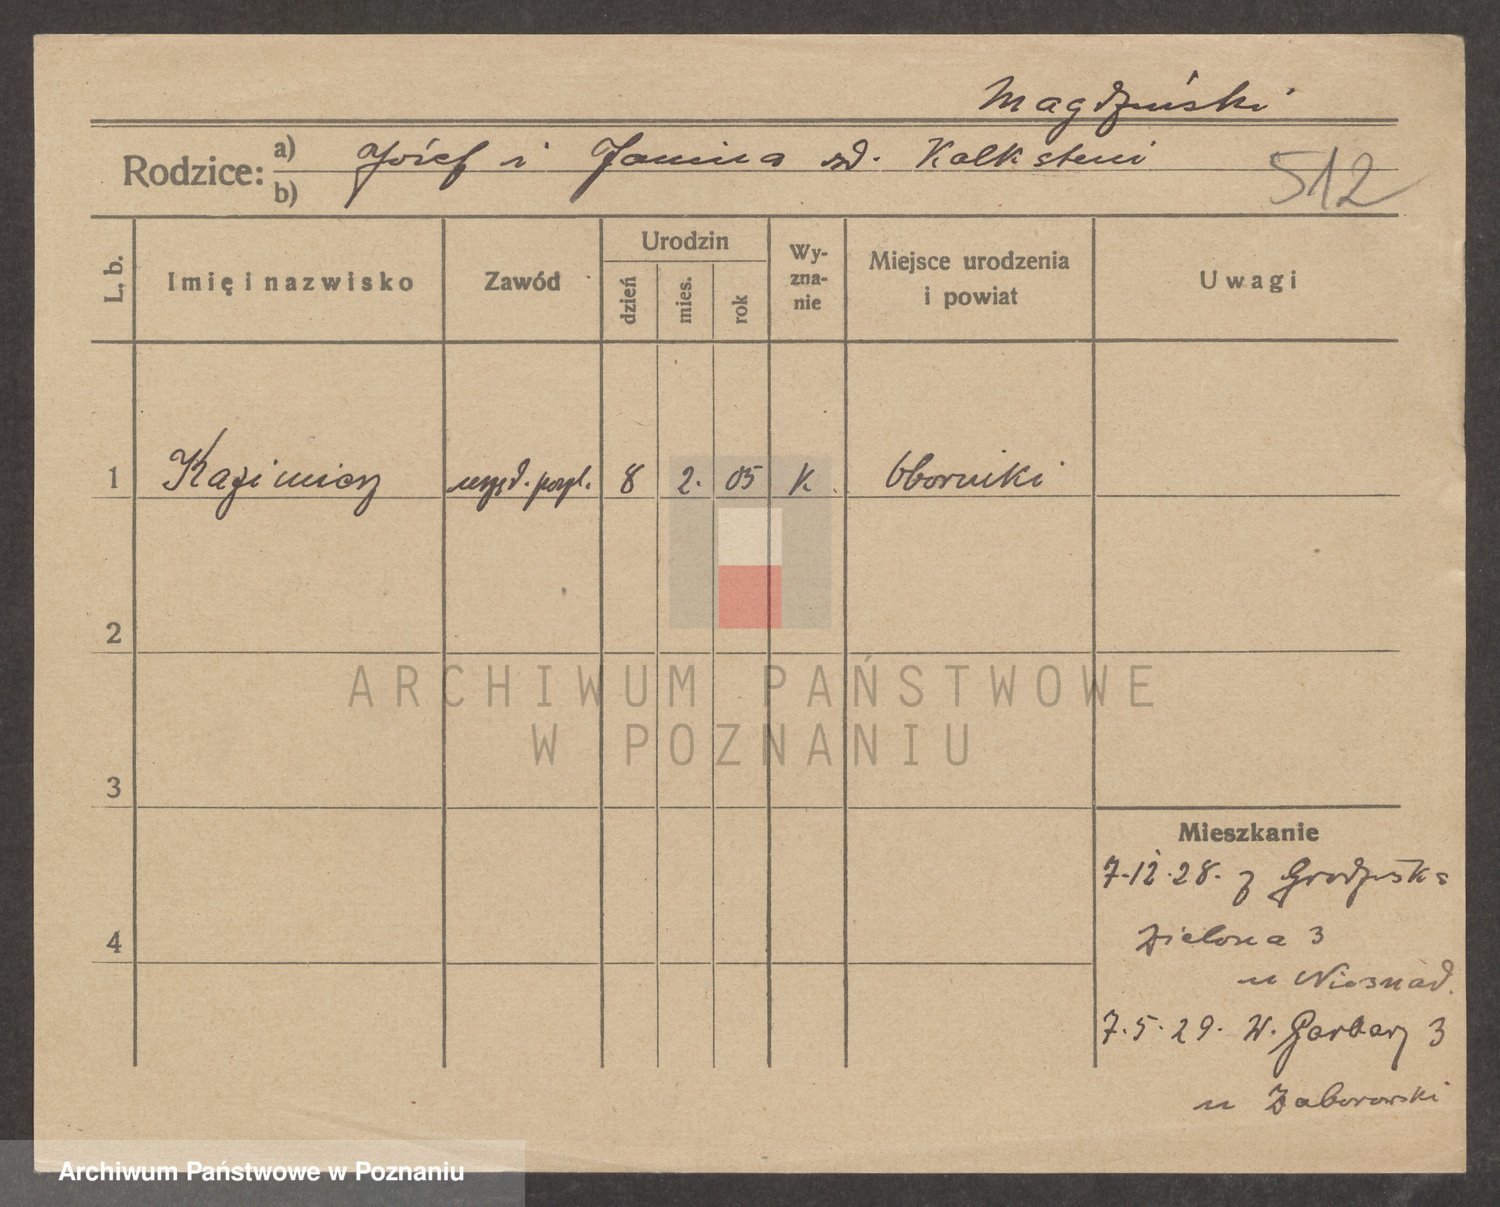 Magdziński
Rodzice: a) Józef i Janina zd. Kalkstein
b)
512
L. b.
Imię i nazwisko
Zawód
Urodzin
dzień
mies.
rok
Wy-
zna-
nie
Miejsce urodzenia
i powiat
Uwagi
1 Kazimierz 8 2. 05 K. Oborniki
2
3
4
Mieszkanie
7.12.28. z Grodziska
Zielona 3
u
7.5.29. W. Garbary 3
u Zaborowski
ARCHIWUM PAŃSTWOWE
W POZNANIU
Archiwum Państwowe w Poznaniu